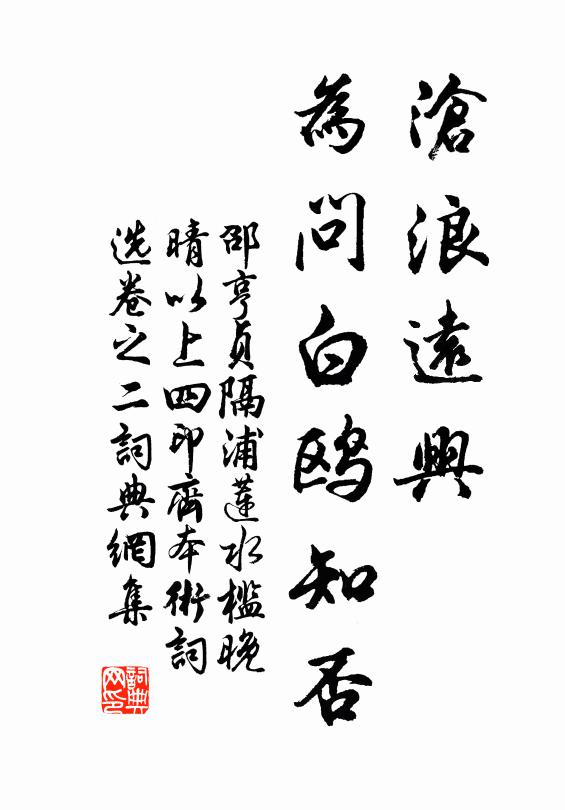 滄浪遠興
為問白鸥知否
邵亨貞隔浦蓮水槛晚
晴以上四印齋本術詞
选卷之二詞典網集
詞典网印